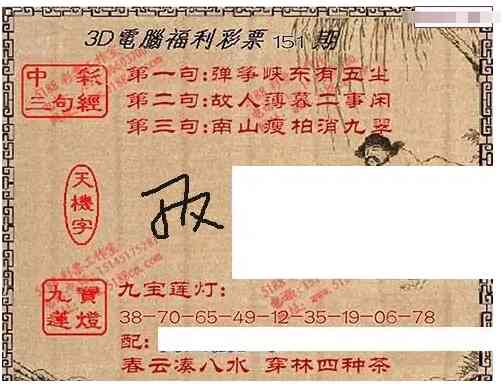 3D電腦福利彩票 151 期
中彩
三句經
第一句:弹筝峡东有五尘
第二句:故人薄暮二事闲
第三句:南山瘦柏消九翠
天機字
九寶
蓮燈
九宝莲灯:
38-70-65-49-12-35-19-06-78
配:
春云凑八水 穿林四种茶